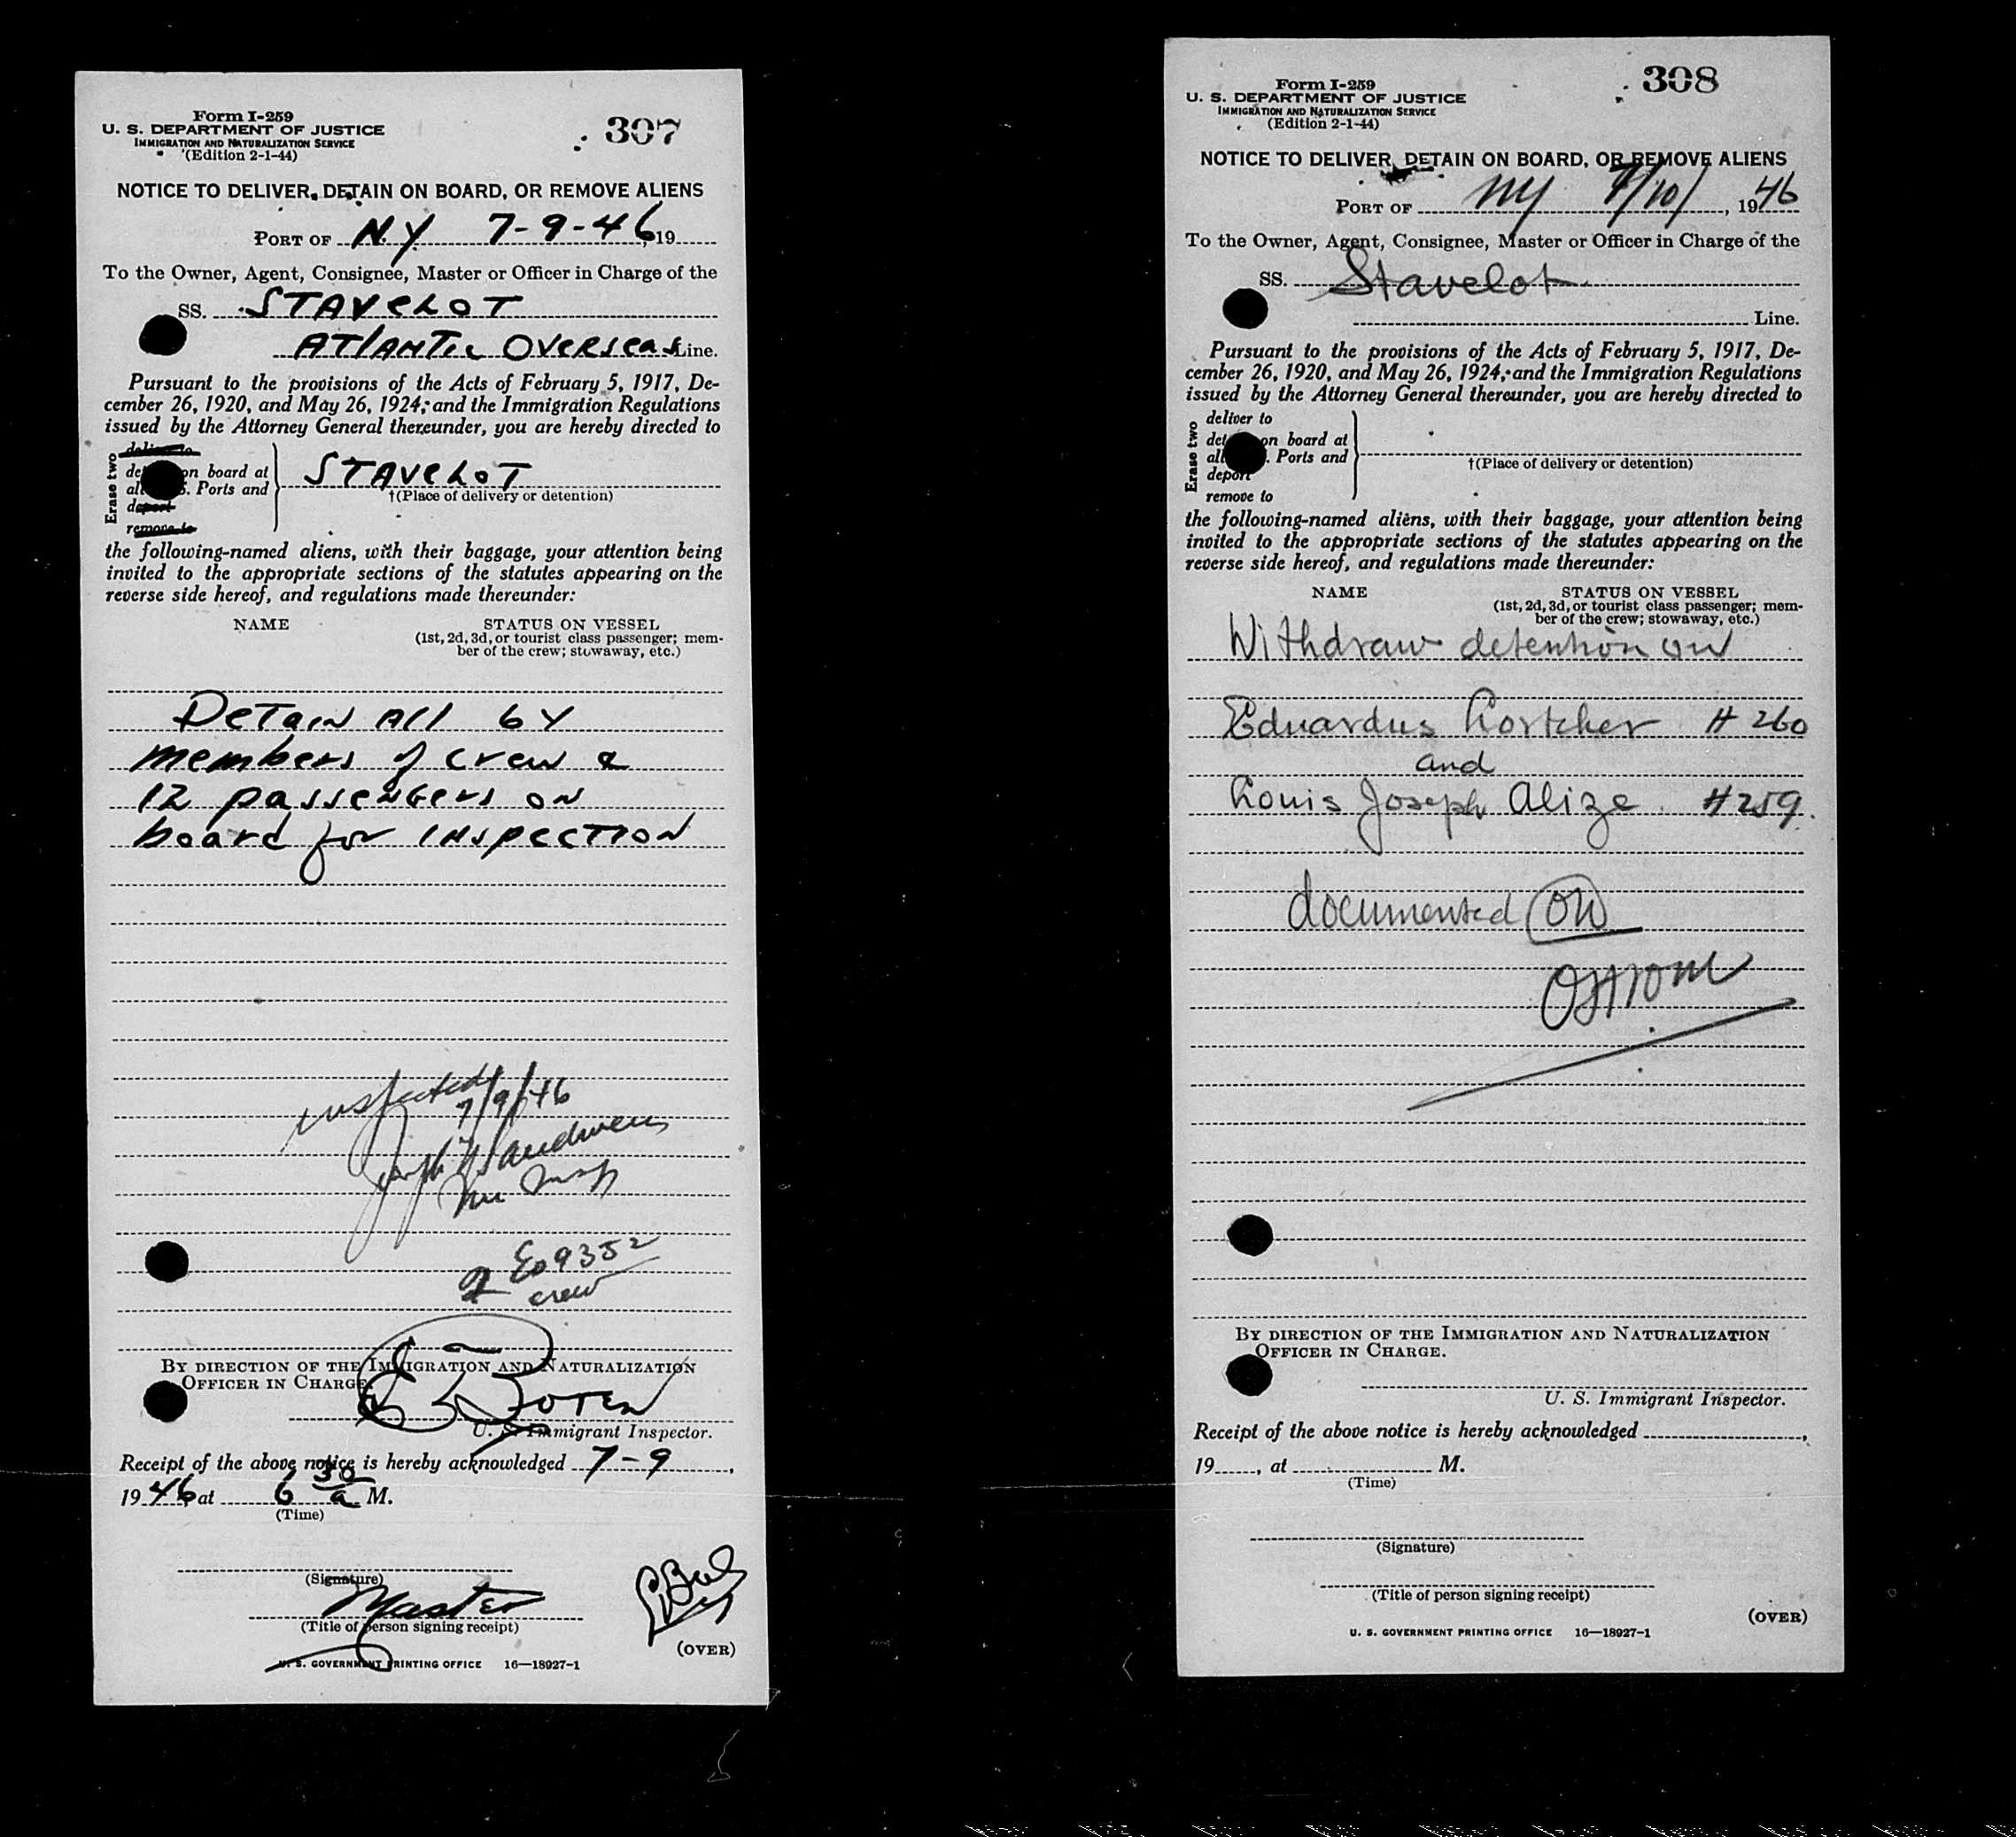 Form I-259
U. S. DEPARTMENT OF JUSTICE
IMMIGRATION AND NATURALIZATION SERVICE
(Edition 2-1-44)
307
NOTICE TO DELIVER, DETAIN ON BOARD, OR REMOVE ALIENS
PORT OF N.Y. 7-9-46 19
To the Owner, Agent, Consignee, Master or Officer in Charge of the
SS. STAVELOT
ATLANTIC OVERSEAS Line.
Pursuant to the provisions of the Acts of February 5, 1917, De-
cember 26, 1920, and May 26, 1924, and the Immigration Regulations
issued by the Attorney General thereunder, you are hereby directed to
Erase two
deliver to
on board at
Ports and
deport
remove to
STAVELOT
†(Place of delivery or detention)
the following-named aliens, with their baggage, your attention being
invited to the appropriate sections of the statutes appearing on the
reverse side hereof, and regulations made thereunder:
NAME STATUS ON VESSEL
(1st, 2d, 3d, or tourist class passenger; mem-
ber of the crew; stowaway, etc.)
DETAIN All 64
members of crew &
12 passengers on
board for INSPECTION
inspected
7/9/46
Insp
9352
crew
BY DIRECTION OF THE IMMIGRATION AND NATURALIZATION
OFFICER IN CHARGE.
U. S. Immigrant Inspector.
Receipt of the above notice is hereby acknowledged 7-9,
1946 at 6 30 a M.
(Time)
(Signature)
Master
(Title of person signing receipt)
(OVER)
U. S. GOVERNMENT PRINTING OFFICE 16—18927-1
Form I-259
U. S. DEPARTMENT OF JUSTICE
IMMIGRATION AND NATURALIZATION SERVICE
(Edition 2-1-44)
308
NOTICE TO DELIVER, DETAIN ON BOARD, OR REMOVE ALIENS
PORT OF NY 7/10/, 1946
To the Owner, Agent, Consignee, Master or Officer in Charge of the
SS. Stavelot
Line.
Pursuant to the provisions of the Acts of February 5, 1917, De-
cember 26, 1920, and May 26, 1924, and the Immigration Regulations
issued by the Attorney General thereunder, you are hereby directed to
Erase two
deliver to
on board at
Ports and
deport
remove to
†(Place of delivery or detention)
the following-named aliens, with their baggage, your attention being
invited to the appropriate sections of the statutes appearing on the
reverse side hereof, and regulations made thereunder:
NAME STATUS ON VESSEL
(1st, 2d, 3d, or tourist class passenger; mem-
ber of the crew; stowaway, etc.)
Withdraw detention on
Eduardus # 260
and
Louis Joseph Alize # 259
documented
BY DIRECTION OF THE IMMIGRATION AND NATURALIZATION
OFFICER IN CHARGE.
U. S. Immigrant Inspector.
Receipt of the above notice is hereby acknowledged ,
19 , at M.
(Time)
(Signature)
(Title of person signing receipt)
(OVER)
U. S. GOVERNMENT PRINTING OFFICE 16—18927-1